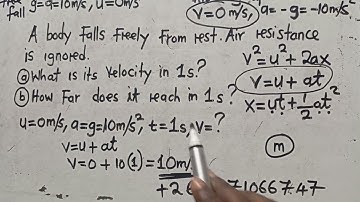 fall g=a=10m/s², u=0m/s
v=0m/s, a=-g=-10m/s²
A body falls Freely From rest. Air resistance
is ignored.
ⓐ What is its velocity in 1s?
ⓑ How far does it reach in 1s?
u=0m/s, a=g=10m/s², t=1s, v=?
v=u+at
v=0+10(1)=10m/
v²=u²+2ax
v=u+at
x=ut+1/2at²
m
+2
71066747